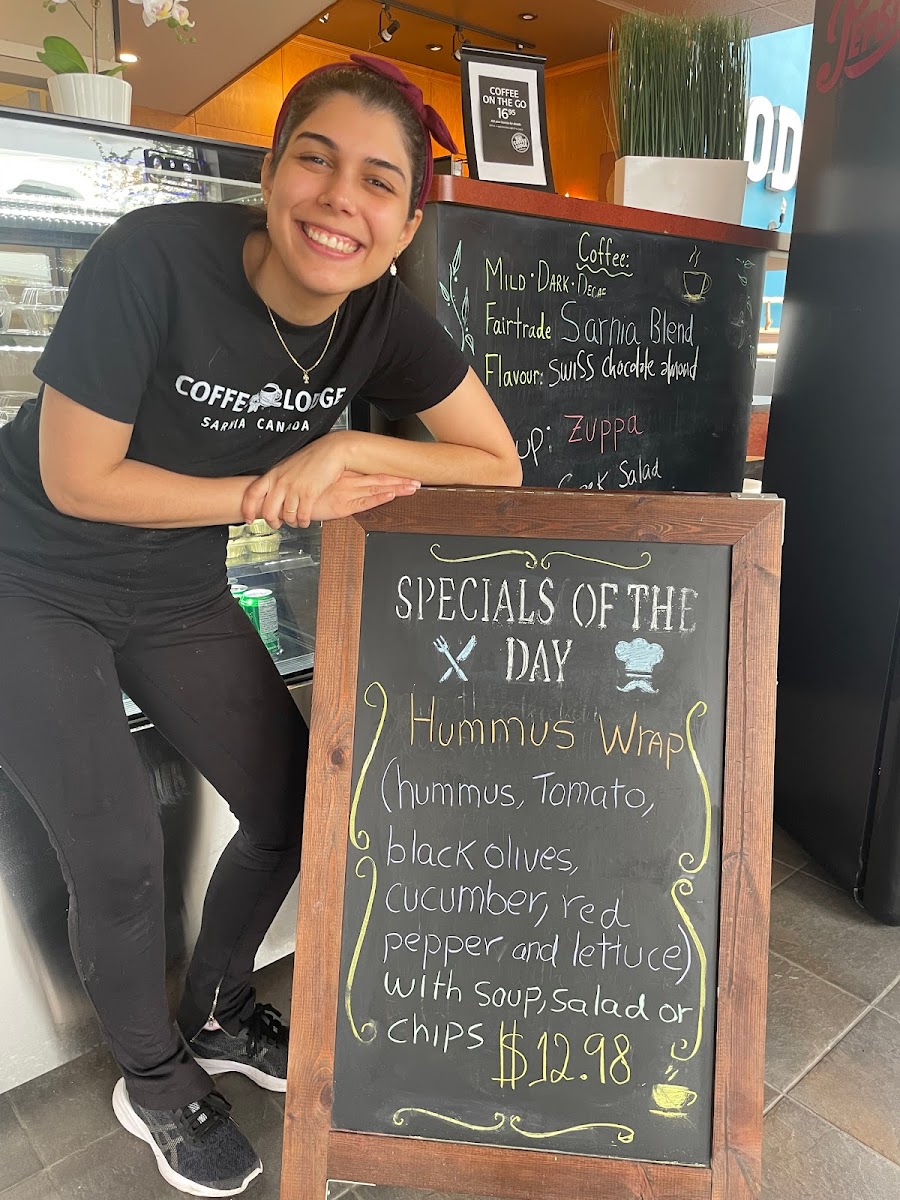 COFFEE
ON THE GO
16⁹⁵
OD
PEPSI
Coffee:
MILD · DARK · DECAF
Fairtrade Sarnia Blend
Flavour: SWISS chocolate almond
Zuppa
Salad
COFFEE LODGE
SARNIA CANADA
SPECIALS OF THE
DAY
HUMMUS WRAP
(hummus, Tomato,
black olives,
cucumber, red
pepper, and lettuce)
with soup, salad or
chips $12.98